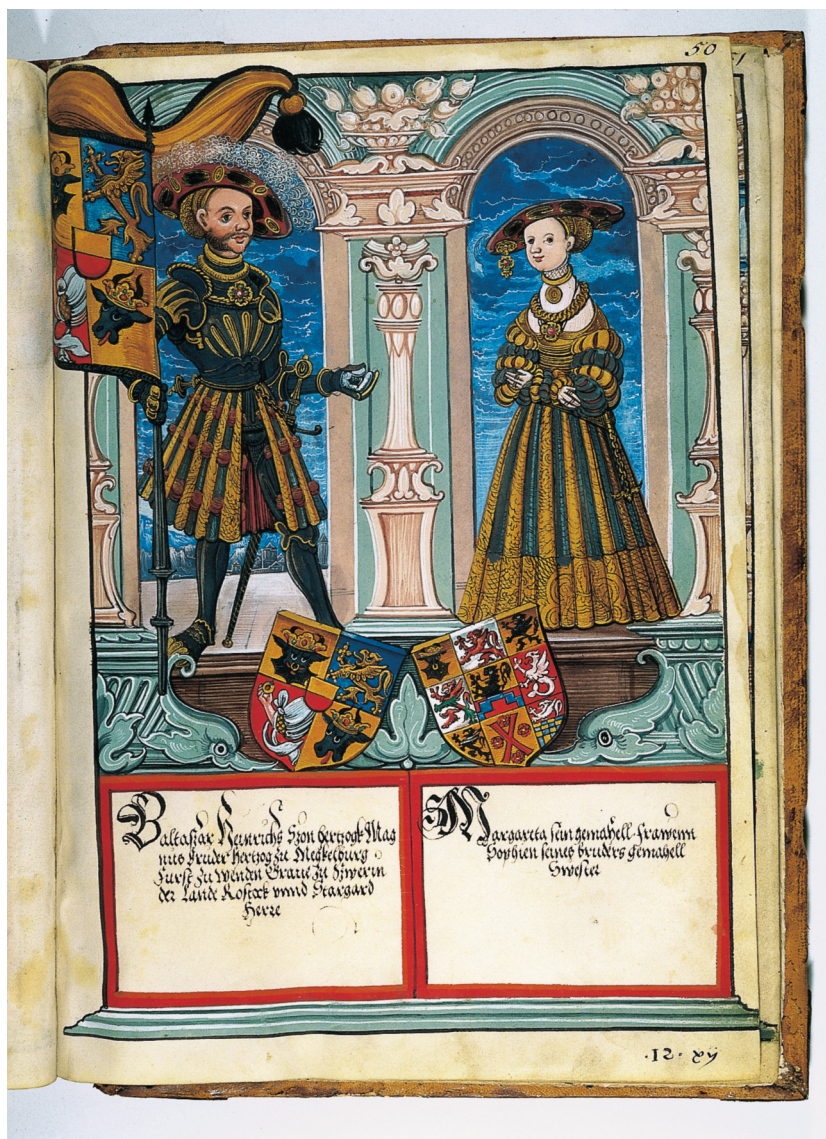 50
Baltasar Heinrichs Szon hertzogk Mag
nus bruder hertzog zu Meckelburg
Furst zu Wenden Graue zu Szwerin
der Lande Rostock vnnd Stargard
Herre
Margareta sein gemahell frawenn
Sophien seines bruders gemahell
Swester
.12. xij